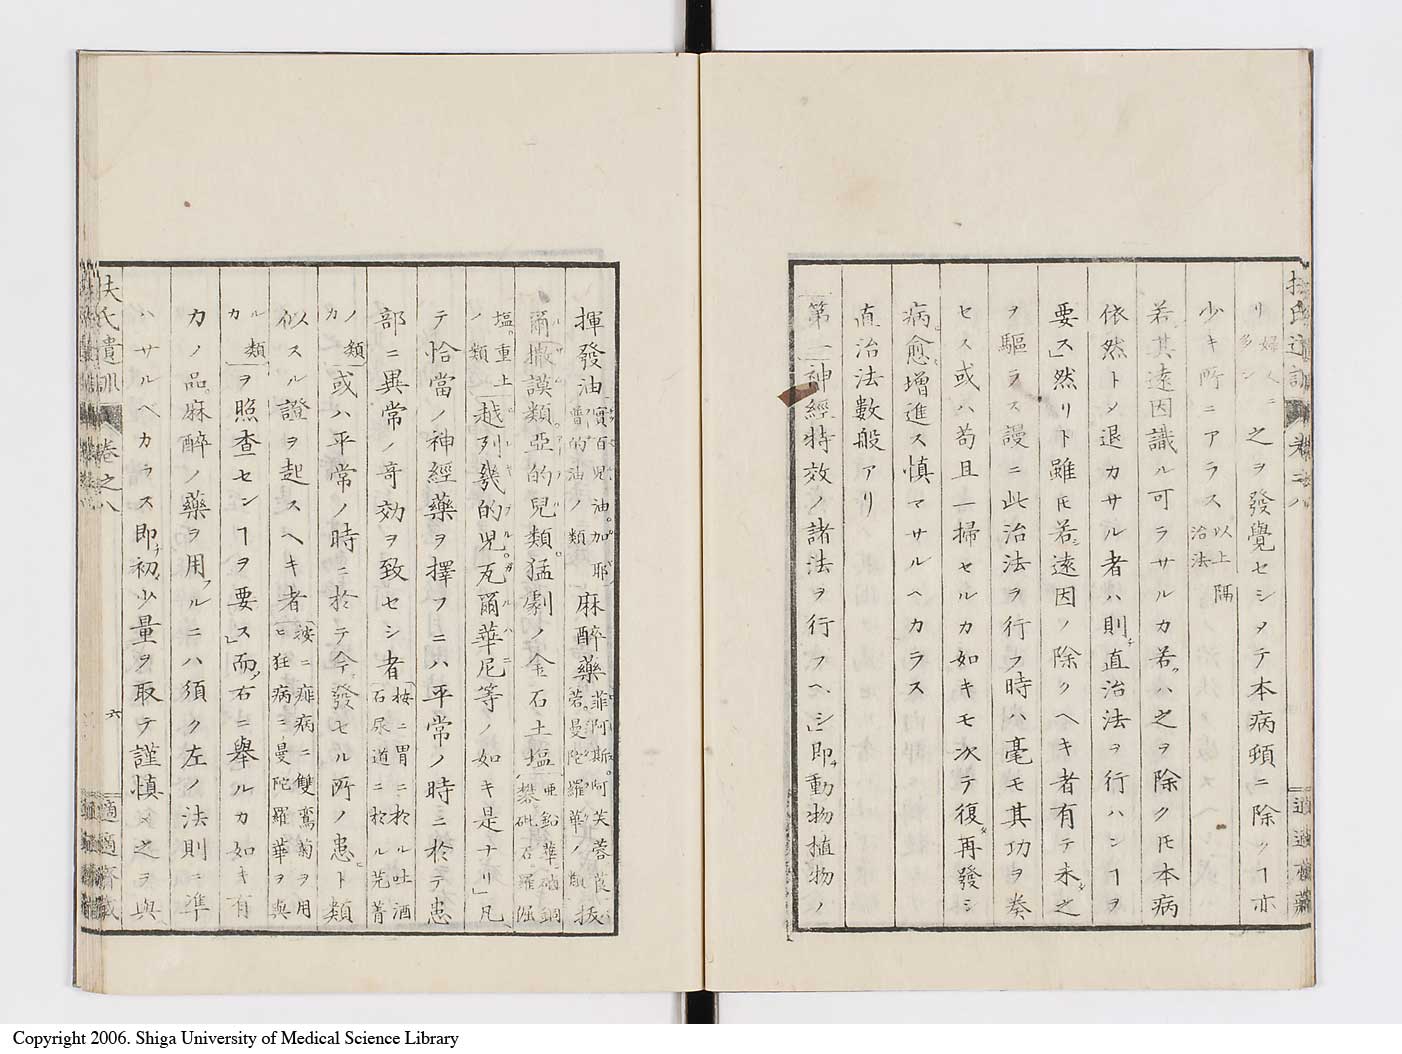 リ 婦人ニ多シ 之ヲ發覺セシメテ本病頓ニ除クヿ亦
少キ所ニアラス 以上隔治法
若其遠因識ル可ラサルカ若クハ之ヲ除クモ本病
依然トメ退カサル者ハ則直治法ヲ行ハンヿヲ
要ス」然リト雖モ若シ遠因ノ除クヘキ者有テ未タ之
ヲ驅ラス謾ニ此治法ヲ行フ時ハ毫モ其功ヲ奏
セス或ハ苟且一掃セルカ如キモ次テ復タ再發シ
病愈增進ス慎マサルヘカラス
直治法數般アリ
第一神經特效ノ諸法ヲ行フヘシ」即チ動物植物ノ
揮發油 實百児油。加耶普的油ノ類 麻醉藥 菲阿斯。阿芙蓉。莨菪。曼陀羅華ノ類 拔
爾撒謨類。亞的兒類。猛劇ノ金石土塩 亜鉛華 礬 砒石 羅倔
塩。重土ノ類 越列幾的児。瓦爾華尼等ノ如キ是ナリ」凡
テ恰當ノ神經藥ヲ擇フニハ平常ノ時ニ於テ患
部ニ異常ノ奇効ヲ致セシ者 按ニ胃ニ於ル吐酒石尿道ニ於ル芫菁
ノ類カ 或ハ平常ノ時ニ於テ今發セル所ノ患ト類
似スル證ヲ起スヘキ者 按ニ癖病ニ雙鸞菊ヲ用ヒ狂病ニ曼陀羅華ヲ與
ル類カ ヲ照査センヿヲ要ス」而ノ右ニ擧ルカ如キ有
力ノ品麻醉ノ藥ヲ用フルニハ須ク左ノ法則ニ準
ハサルベカラス即チ初メ少量ヲ取テ謹慎メ之ヲ與
扶氏遺訓 卷之八 六 適適齋藏